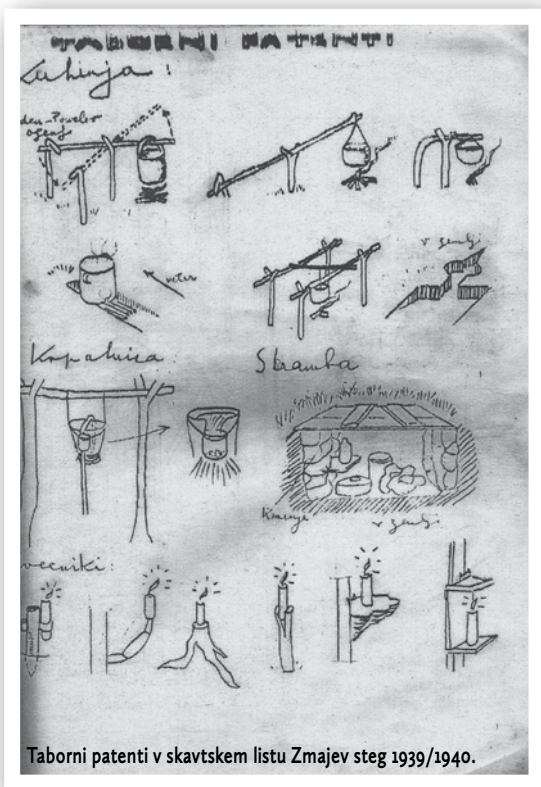 TABORNI PATENTI
Kuhinja :
den-Powelov
ogenj
veter
v zemlji
Kopalnica
Shramba
Kamenje
v zemlji
večniki:
Taborni patenti v skavtskem listu Zmajev steg 1939/1940.